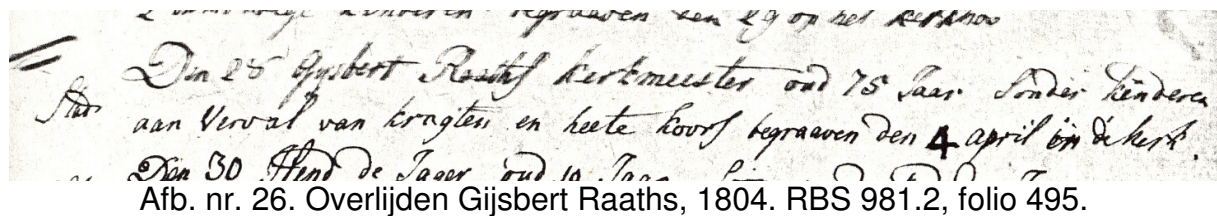 kinderen begraaven den 29 op het kerkhov
Den 26 Gijsbert Raaths kerkmeester oud 75 Jaar Sonder kinderen
Stad aan Verval van kragten en heete koors begraaven den 4 april in de kerk.
Den 30 Hend de Jager oud Jaar
Afb. nr. 26. Overlijden Gijsbert Raaths, 1804. RBS 981.2, folio 495.